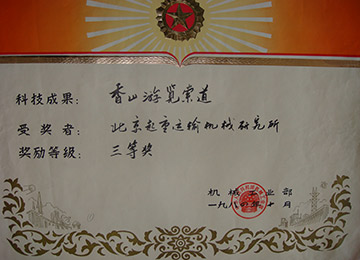 科技成果: 香山游览索道
受奖者: 北京起重运输机械研究所
奖励等级: 三等奖
机械工业部
一九八四年十月